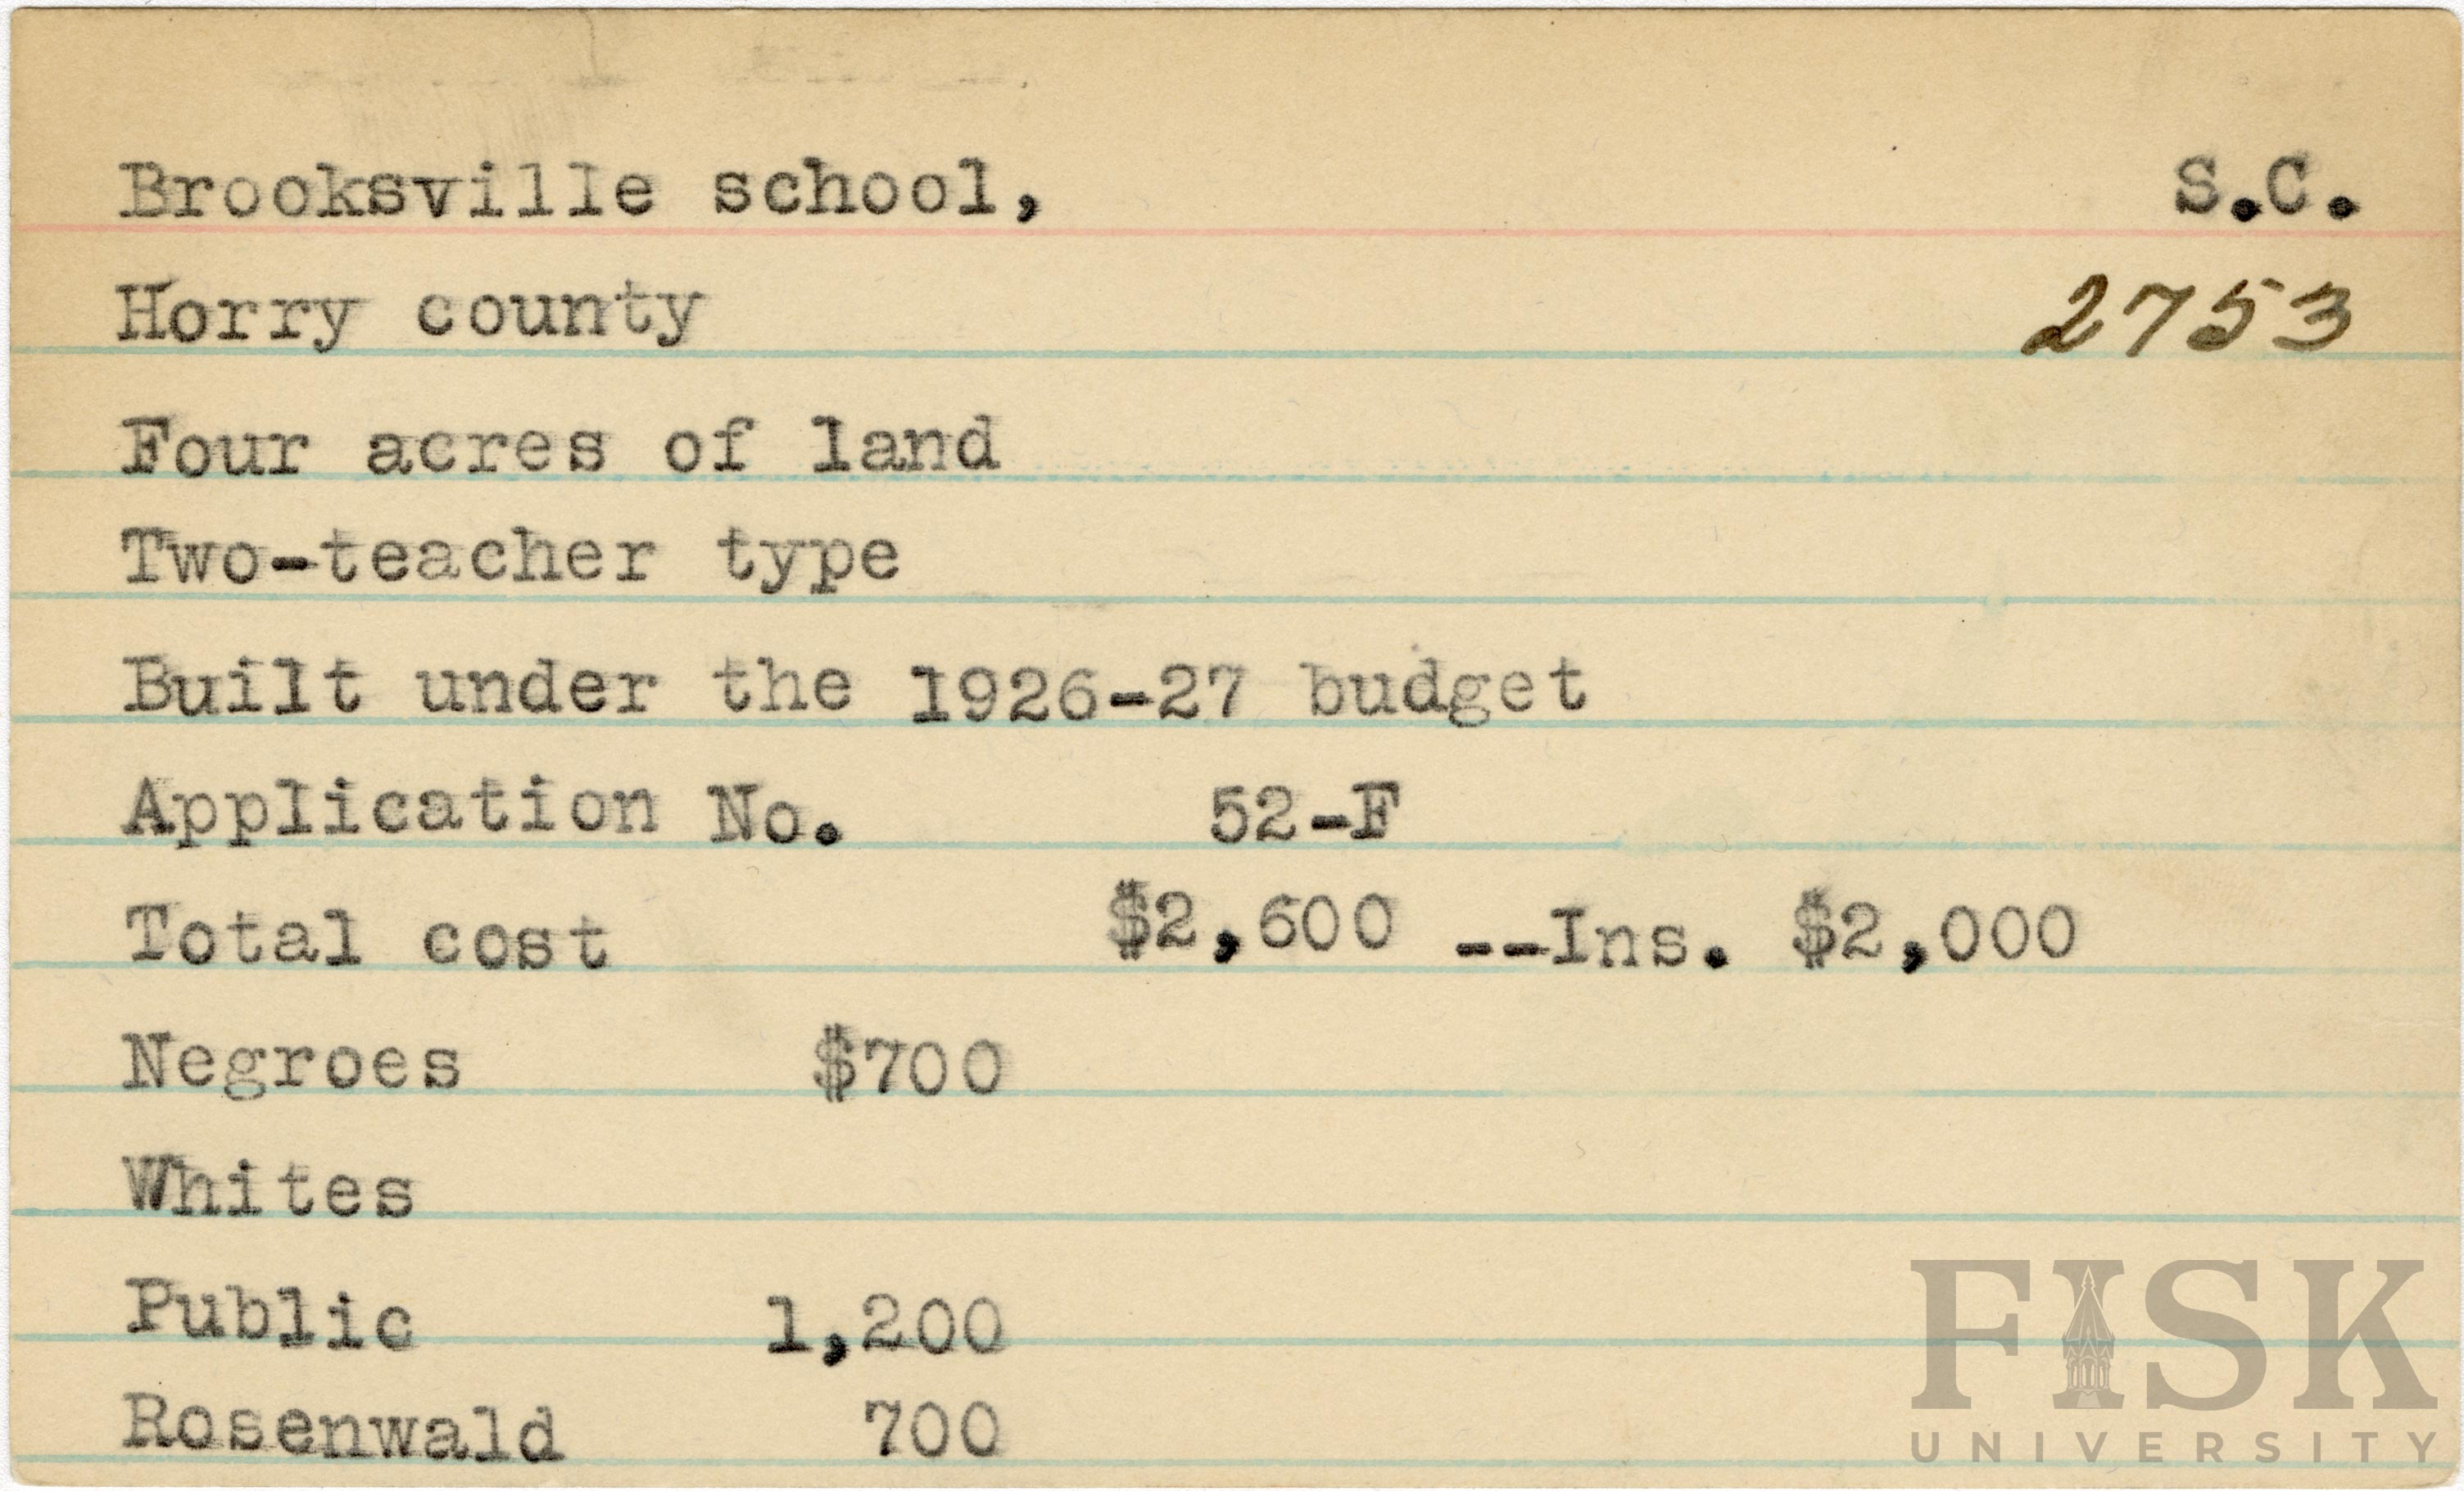 Brooksville school, S.C.
Horry county 2753
Four acres of land
Two-teacher type
Built under the 1926-27 budget
Application No. 52-F
Total cost $2,600 --Ins. $2,000
Negroes $700
Whites
Public 1,200
Rosenwald 700
FISK
UNIVERSITY